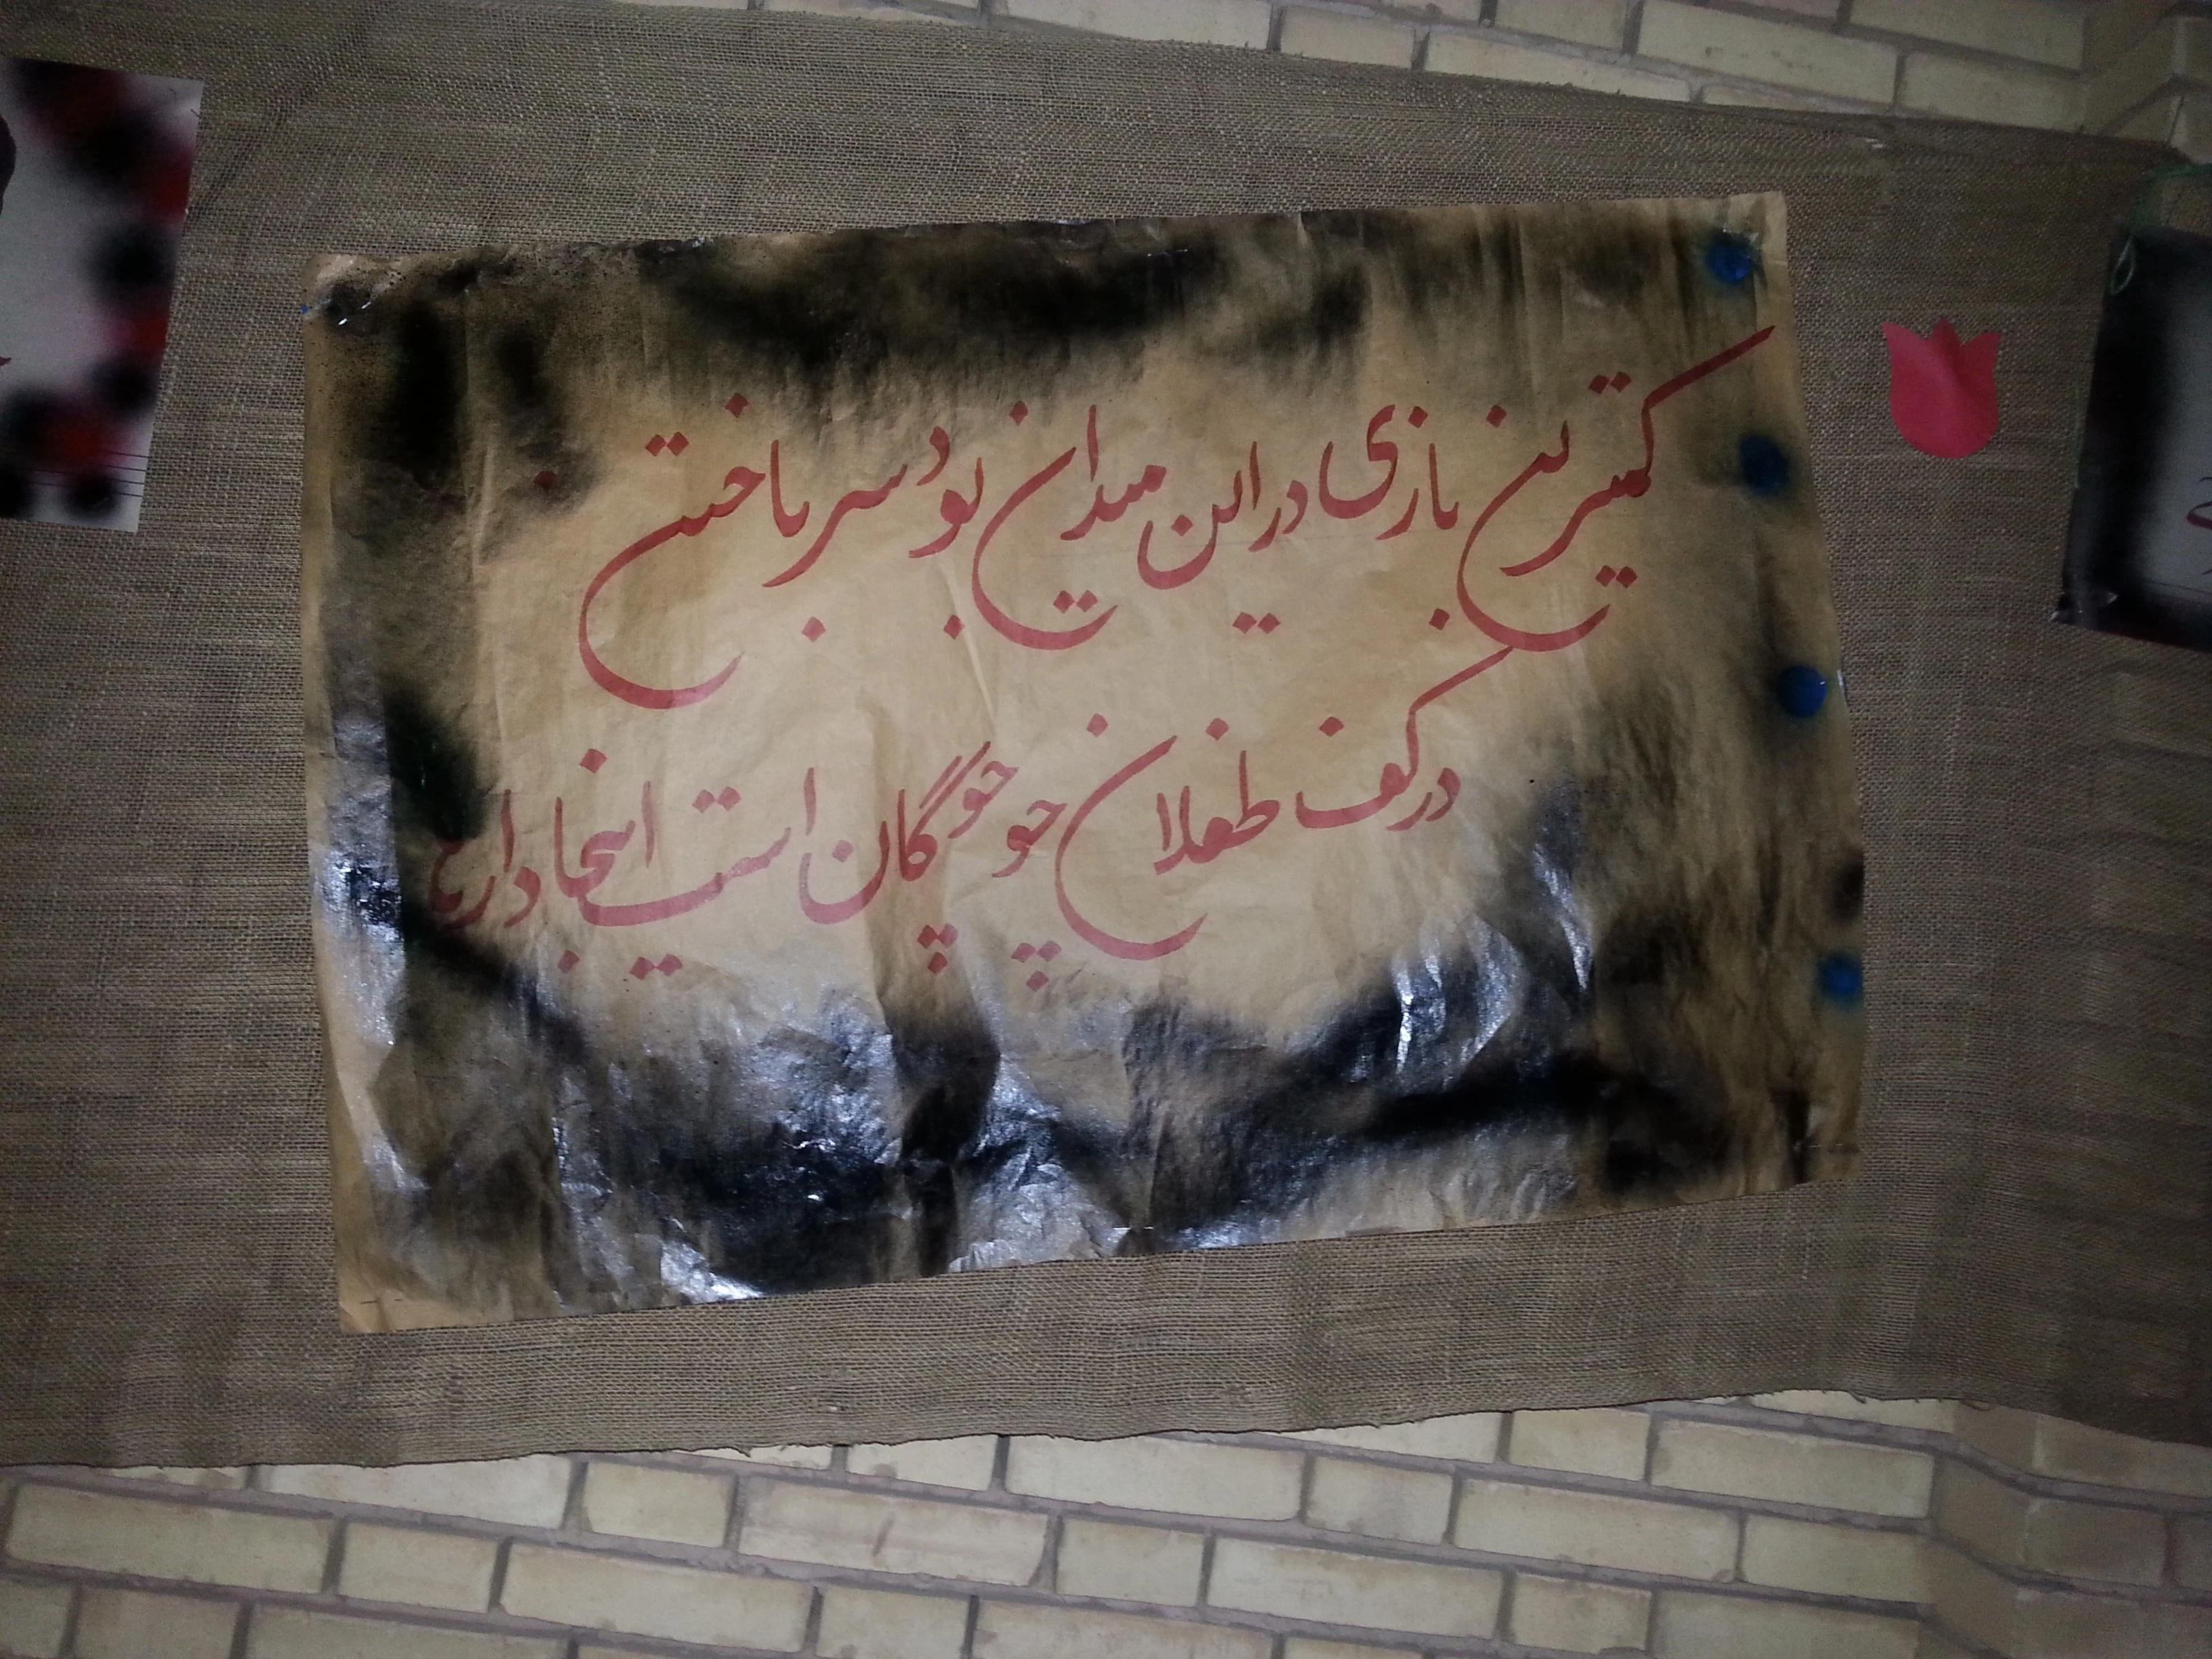 کمترین بازی در این میدان بود سر باختن
در کف طفلان چو چوگان است اینجا دارها